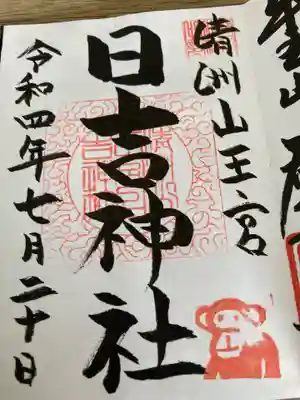 清洲山王宮
日吉神社
令和四年七月二十日